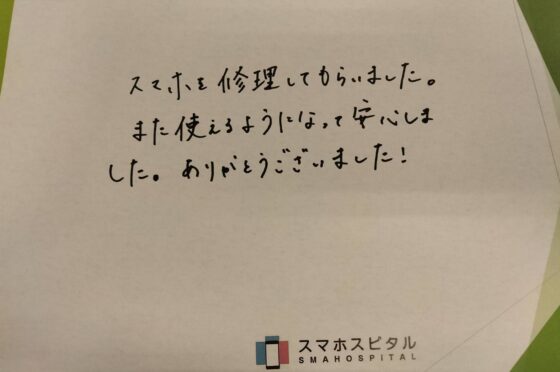 スマホを修理してもらいました。
また使えるようになって安心しま
した。ありがとうございました!
スマホスピタル
SMAHOSPITAL